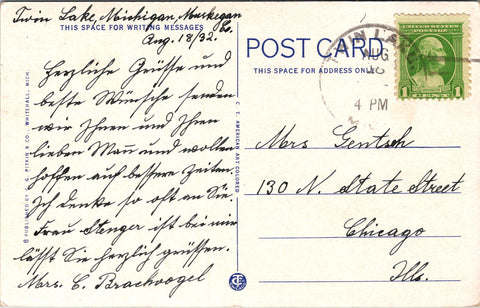 Twin Lake, Michigan, Muskegon
Co.
THIS SPACE FOR WRITING MESSAGES
Aug. 18/32.
Herzliche Grüsse und
beste Wünsche senden
wir Ihnen und Ihren
lieben Mann und wollen
hoffen auf bessere Zeiten.
Ich denke so oft an Sie.
Frau Stenger ist bei mir
lässt Sie herzlich grüssen.
Mrs. C. Brachvogel
8 PUBLISHED BY C. G. PITKIN & CO., WHITEHALL, MICH.
C. T. AMERICAN ART COLORED
POST CARD
THIS SPACE FOR ADDRESS ONLY
TWIN LAKE
AUG
4 PM
UNITED STATES
POSTAGE
1 CENT 1
Mrs Gentsch
130 N. State Street
Chicago
Ills.